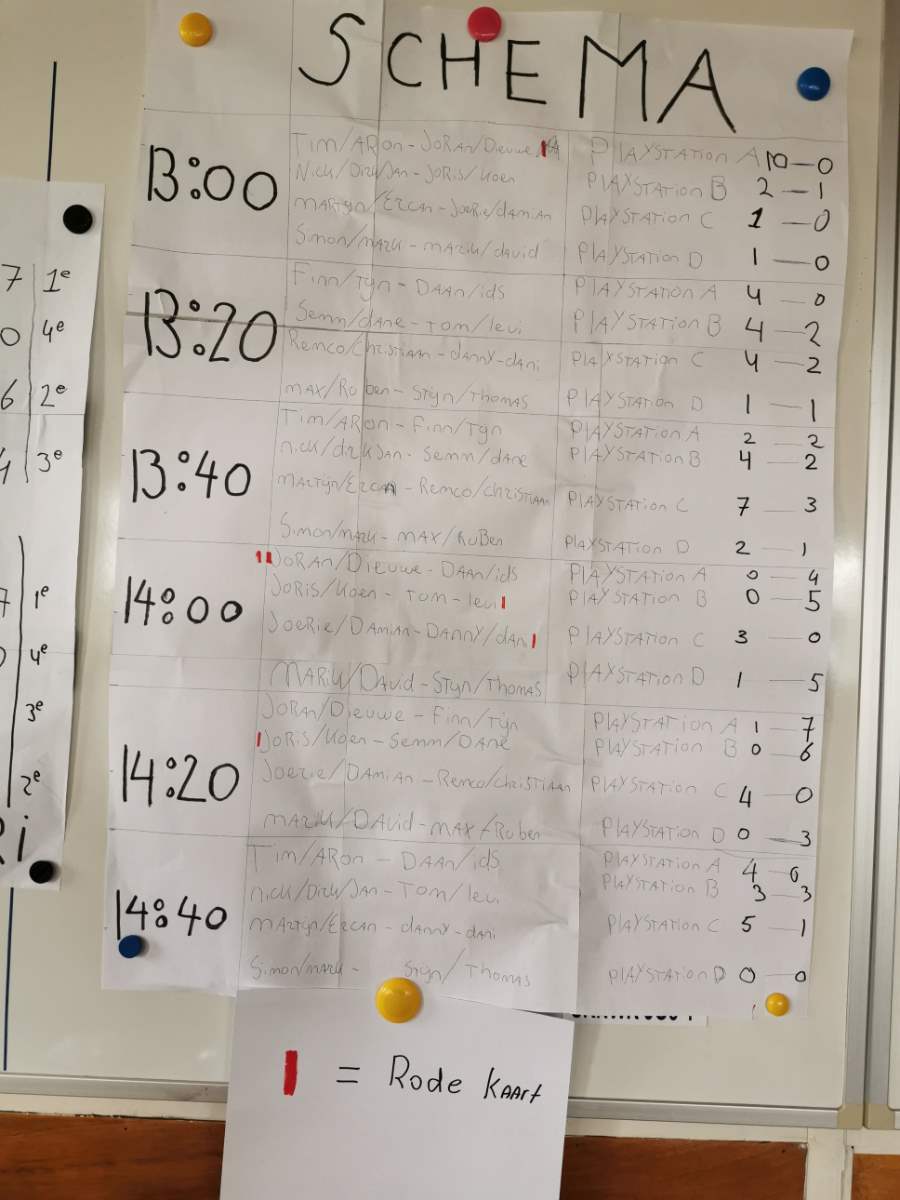 SCHEMA
13:00
Tim/ARon - JoRAn/Dieuwe PlAYSTATION A 10 - 0
Nick/Dirk/Jan - JoRis/Koen PlAYSTATION B 2 - 1
MARTijn/Ercan - Joerie/Damian PlAYSTATION C 1 - 0
Simon/mark - mariu/david PlAYSTATION D 1 - 0
13:20
Finn/Tijn - DAAn/ids PlAYSTATION A 4 - 0
Semm/dane - Tom/levi PlAYSTATION B 4 - 2
Remco/Christiaan - danny - dani PlAYSTATION C 4 - 2
mAX/Ruben - Stijn/Thomas PlAYSTATION D 1 - 1
13:40
Tim/ARon - Finn/Tijn PlAYSTATION A 2 - 2
nick/dirk/Jan - Semm/dane PlAYSTATION B 4 - 2
MARTijn/Ercan - Remco/christiaan PlAYSTATION C 7 - 3
Simon/mark - MAX/RuBen PlAYSTATION D 2 - 1
14:00
JoRAn/Dieuwe - DAAn/ids PlAYSTATION A 0 - 4
JoRis/Koen - Tom - levi PlAYSTATION B 0 - 5
Joerie/DAmian - DAnny/dani PlAYSTATION C 3 - 0
MARiu/DAvid - Stijn/Thomas PlAYSTATION D 1 - 5
14:20
JoRAn/Dieuwe - Finn/Tijn PlAYSTATION A 1 - 7
JoRis/Koen - Semm/DAne PlAYSTATION B 0 - 6
Joerie/DAmian - Remco/christiaan PlAYSTATION C 4 - 0
mariu/DAvid - mAX/Ruben PlAYSTATION D 0 - 3
14:40
Tim/ARon - DAAn/ids PlAYSTATION A 4 - 0
nick/Dirk/Jan - Tom/levi PlAYSTATION B 3 - 3
mARTijn/Ercan - danny - dani PlAYSTATION C 5 - 1
Simon/mark - Stijn/Thomas PlAYSTATION D 0 - 0
= Rode kAArt
7 1e
0 4e
6 2e
4 3e
7 1e
4e
3e
2e